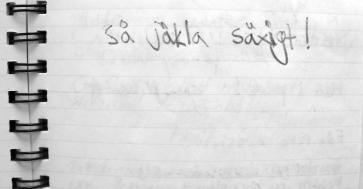 så jäkla säxigt!